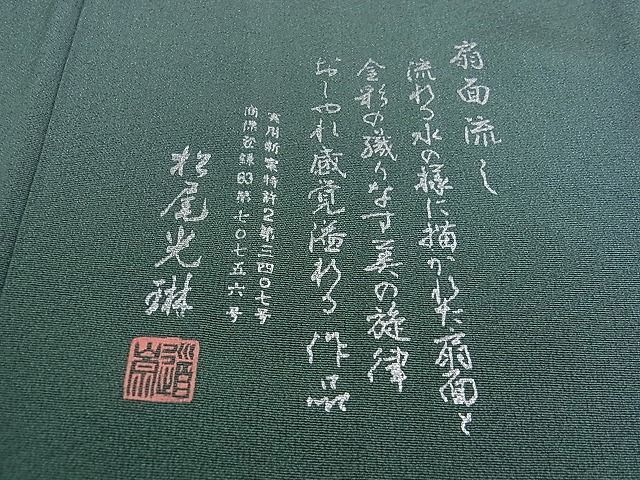 扇面流し
流れる水の様に描かれた扇面と
金彩の織りなす美の旋律
おしゃれ感覚溢れる作品
実用新案特許2第三四〇七号
商標登録63第十〇七五六号
松尾光琳